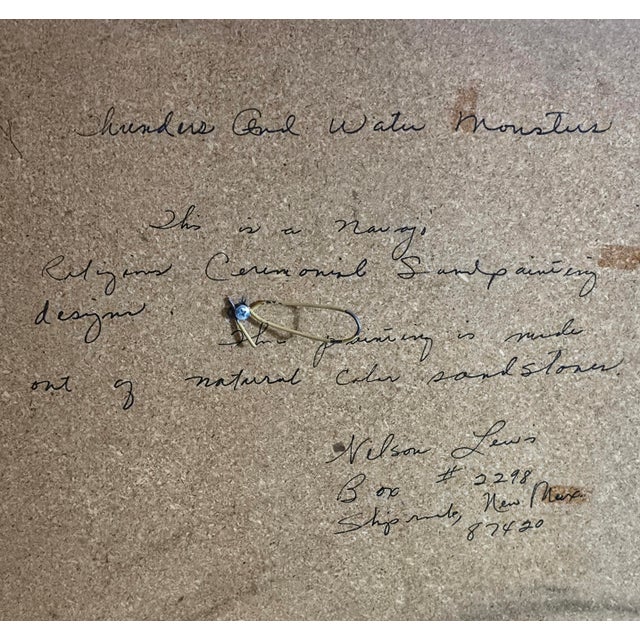 Thunders And Water Monsters
This is a Navajo
Religious Ceremonial Sandpainting
designs.
This painting is made
out of natural color sandstones.
Nelson Lewis
Box # 2298
Shiprock, New Mex.
87420